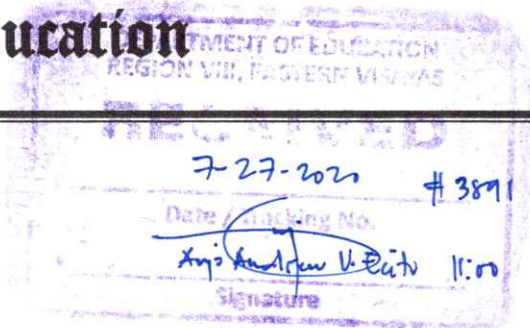 ucation
TMENT OF EDUCATION
REGION VIII, EASTERN VISAYAS
RECEIVED
7-27-2020 # 3891
Date / Tracking No.
11:00
Signature